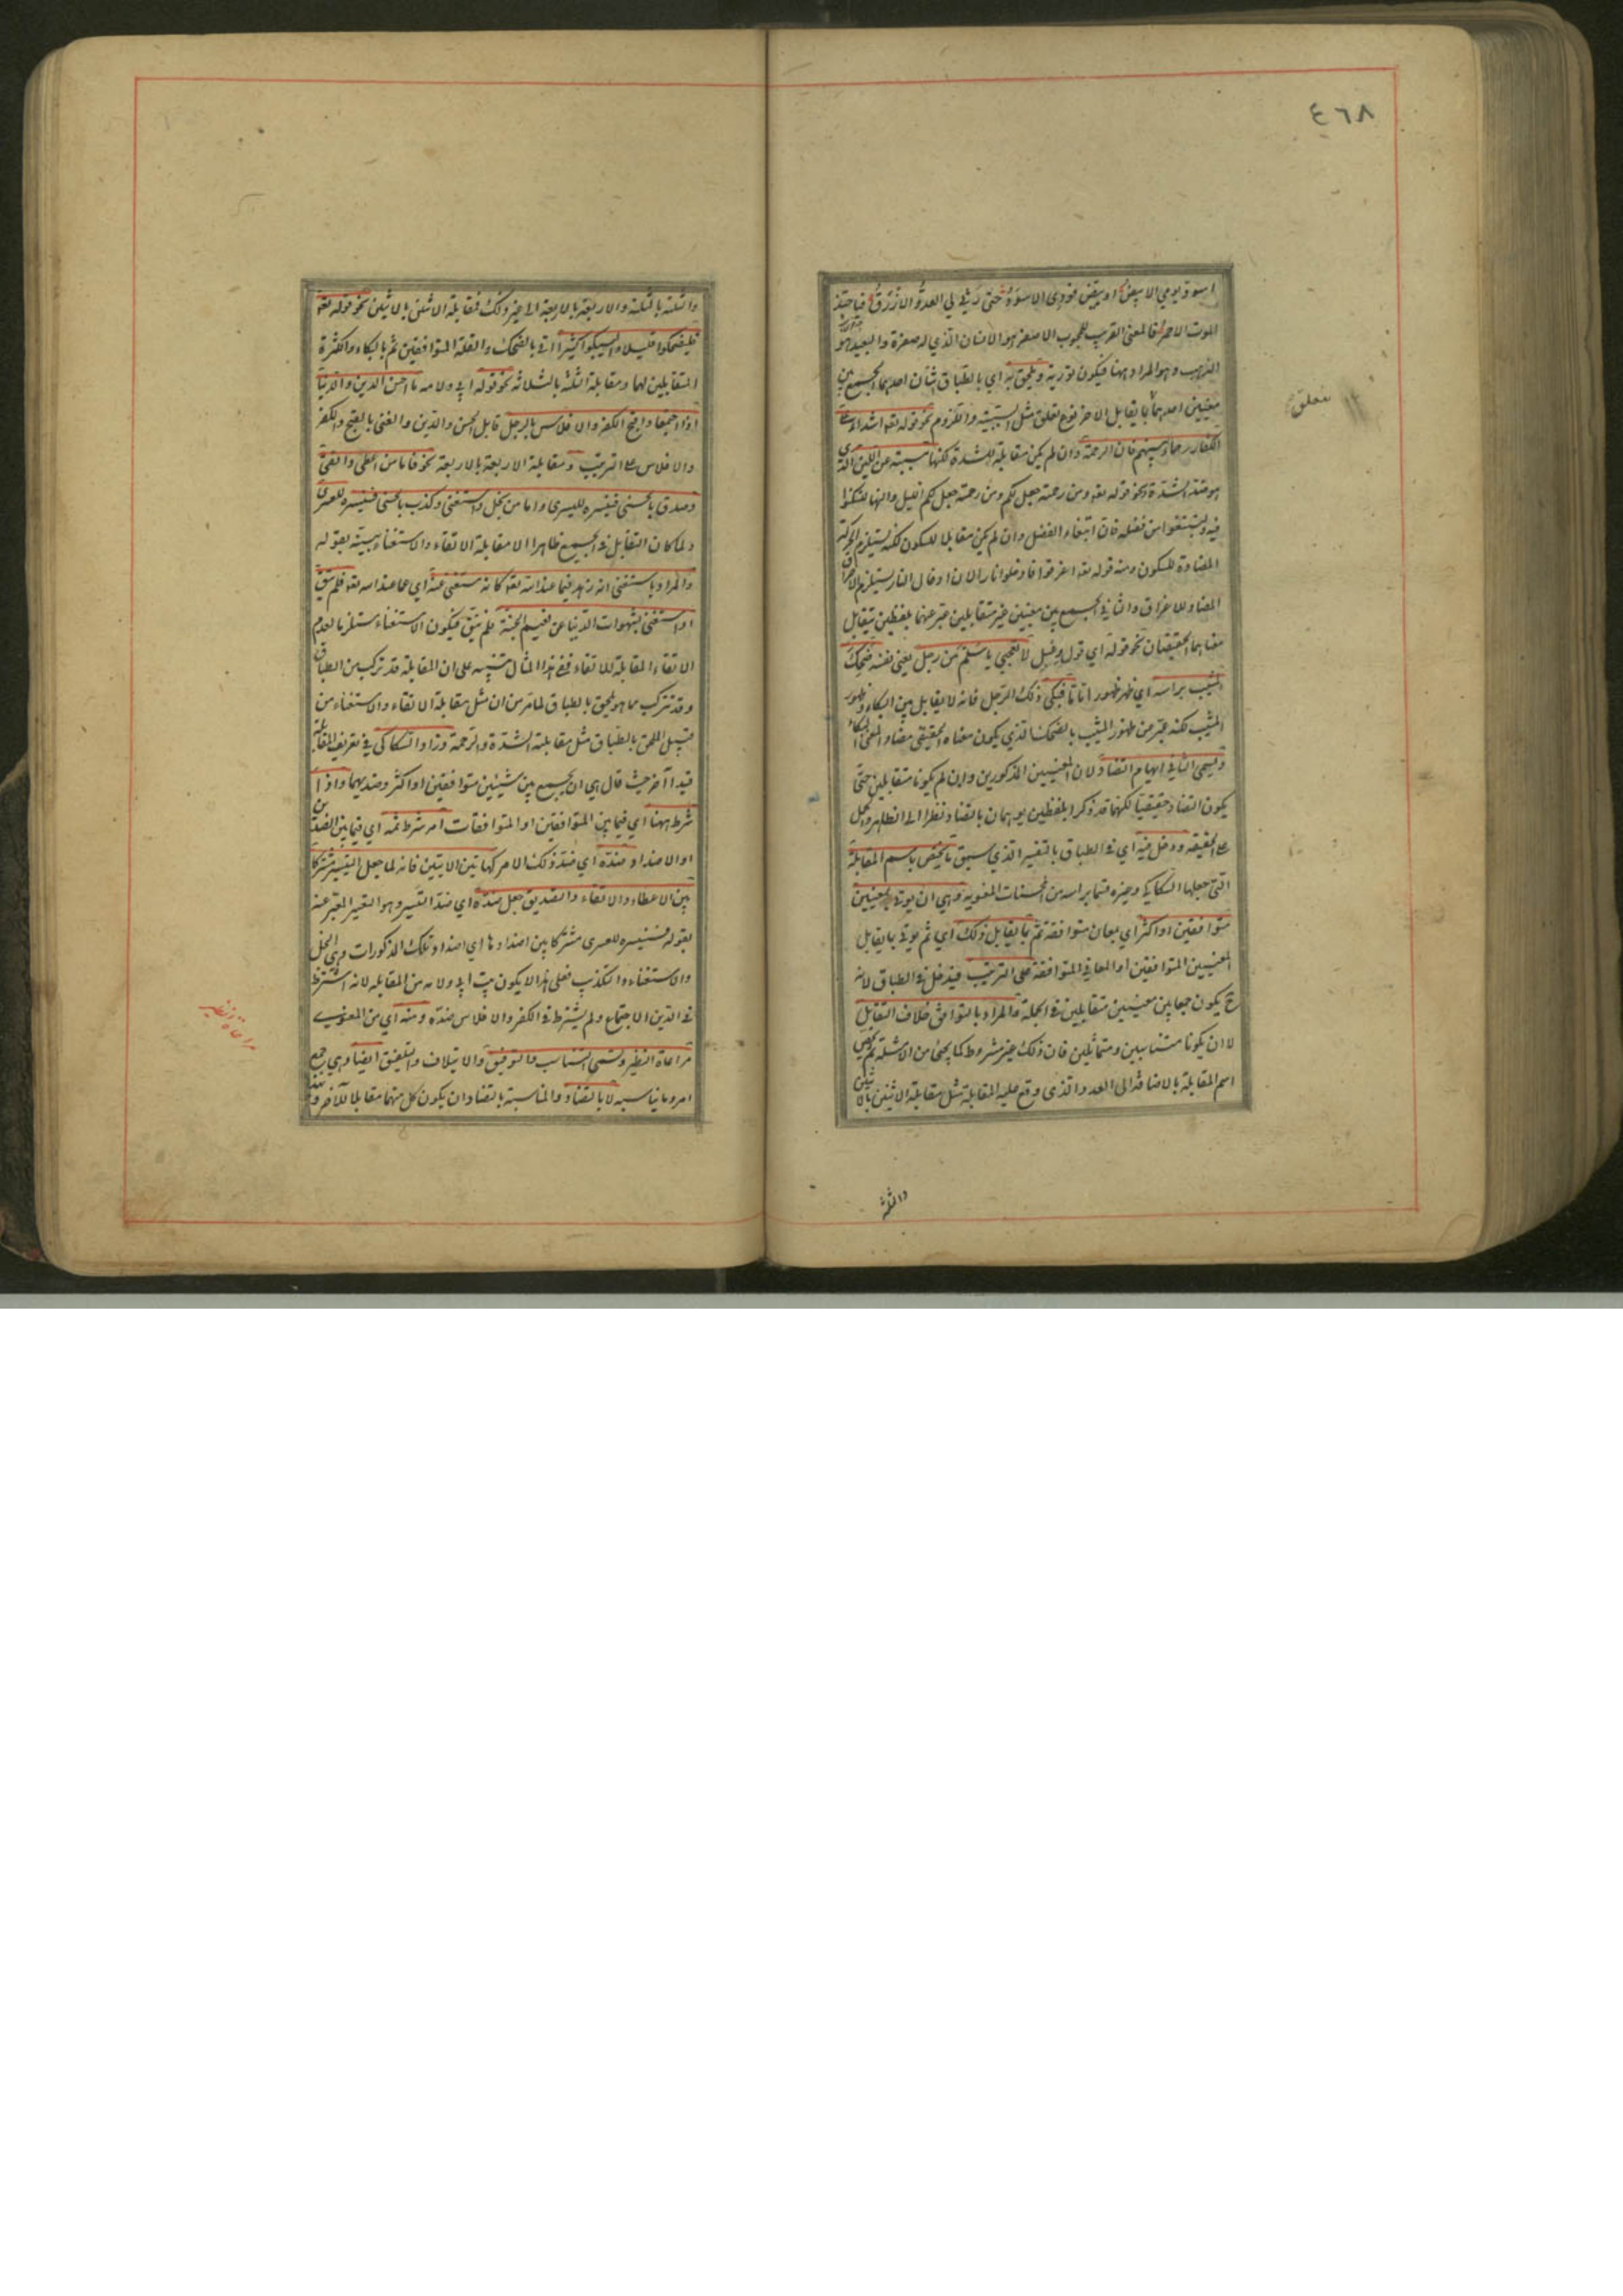 ٤٦٨
اسود يومي الابيض وابيض فودي الاسود حتى رثى لي العدو الازرق فيا حبذا
الموت الاحمر فالمعنى القريب للمحبوب الاصفر هو الانسان الذي له صفرة والبعيد هو
الذهب وهو المراد ههنا فيكون تورية ويلحق به اي بالطباق شيئان احدهما الجمع بين
معنيين احدهما بما يقابل الاخر نوع تعلق مثل السببية واللزوم نحو قوله تعه اشداء على
الكفار رحماء بينهم فان الرحمة وان لم يكن مقابلة للشدة لكنها مسببة عن اللين الذي
هو ضد الشدة ونحو قوله تعه ومن رحمته جعل لكم ومن رحمته جعل لكم الليل والنهار لتسكنوا
فيه ولتبتغوا من فضله فان ابتغاء الفضل وان لم يكن مقابلا للسكون لكنه يستلزم الحركة
المضادة للسكون ومنه قوله تعه اغرقوا فادخلوا نارا لان ادخال النار يستلزم الاحراق
المضاد للاغراق والثاني الجمع بين معنيين غير متقابلين عبر عنهما بلفظين يتقابل
معناهما الحقيقيان نحو قوله اي قول دعبل لا تعجبي يا سلم من رجل يعني نفسه ضحك
المشيب براسه اي ظهر ظهورا تاما فبكى ذلك الرجل فانه لا يقابل بين البكاء وظهور
المشيب لكنه عبر عن ظهور المشيب بالضحك الذي يكون معناه الحقيقي مضاد المعنى البكاء
ويسمى الثاني ايهام التضاد لان المعنيين المذكورين وان لم يكونا متقابلين حتى
يكون التضاد حقيقيا لكنهما قد ذكرا بلفظين يوهمان بالتضاد نظرا الى الظاهر والحمل
على الحقيقة ودخل فيه اي في الطباق بالتفسير الذي سبق ما يختص باسم المقابلة
التي جعلها السكاكي وغيره قسما براسه من المحسنات المعنوية وهي ان يوتى بمعنيين
متوافقين او اكثر اي بمعان متوافقة ثم بما يقابل ذلك اي ثم يوتى بما يقابل
المعنيين المتوافقين او المعاني المتوافقة على الترتيب فيدخل في الطباق لانه
ح يكون جمعا بين معنيين متقابلين في الجملة والمراد بالتوافق خلاف التقابل
لا ان يكونا متناسبين ومتماثلين فان ذلك غير مشروط كما يجئ من الامثلة ثم يختص
اسم المقابلة بالاضافة الى العدد الذي وقع عليه المقابلة مثل مقابلة الاثنين بالاثنين
والثلثة
متعلق
والثلثة بالثلثة والاربعة بالاربعة الى غير ذلك فمقابلة الاثنين بالاثنين نحو قوله تعه
فليضحكوا قليلا وليبكوا كثيرا اتى بالضحك والقلة المتوافقين ثم بالبكاء والكثرة
المتقابلين لهما ومقابلة الثلثة بالثلاثة نحو قوله اي ولامه ما احسن الدين والدنيا
اذا اجتمعا واقبح الكفر والافلاس بالرجل قابل الحسن والدين والغنى بالقبح والكفر
والافلاس على الترتيب ومقابلة الاربعة بالاربعة نحو فاما من اعطى واتقى
وصدق بالحسنى فسنيسره لليسرى واما من بخل واستغنى وكذب بالحسنى فسنيسره للعسرى
ولما كان التقابل في الجميع ظاهرا الا مقابلة الاتقاء والاستغناء بينه بقوله
والمراد باستغنى انه زهد فيما عند الله تعه كانه مستغنى عنه اي عما عند الله تعه فلم يتق
او استغنى بشهوات الدنيا عن نعيم الجنة فلم يتق فيكون الاستغناء مستلزما لعدم
الاتقاء المقابلة للاتقاء ففي هذا المثال تنبيه على ان المقابلة قد تركب من الطباق
وقد تتركب مما هو يلحق بالطباق لما مر من ان مثل مقابلة الاتقاء والاستغناء من
قبيل الملحق بالطباق مثل مقابلة الشدة والرحمة وزاد السكاكي في تعريف المقابلة
قيدا آخر حيث قال هي ان يجمع بين شيئين متوافقين او اكثر وضديهما واذا
شرط ههنا اي فيما بين المتوافقين او المتوافقات امر شرط ثمه اي فيما بين الضدين
او الاضداد ضده اي ضد ذلك الامر كهاتين الايتين فانه لما جعل التيسير مشتركا
بين الاعطاء والاتقاء والتصديق جعل ضده اي ضد التيسير وهو التعسير المعبر عنه
بقوله فسنيسره للعسرى مشتركا بين اضدادها اي اضداد تلك المذكورات وهي البخل
والاستغناء والتكذيب فعلى هذا لا يكون بيت ابي دلامه من المقابلة لانه اشترط
في الدين الاجتماع ولم يشترط في الكفر والافلاس ضده ومنه اي من المعنوي
مراعاة النظير وتسمى التناسب والتوفيق والايتلاف والتلفيق ايضا وهي جمع
امر وما يناسبه لا بالتضاد والمناسبة بالتضاد ان يكون كل منهما مقابلا للآخر
مراعاة النظير